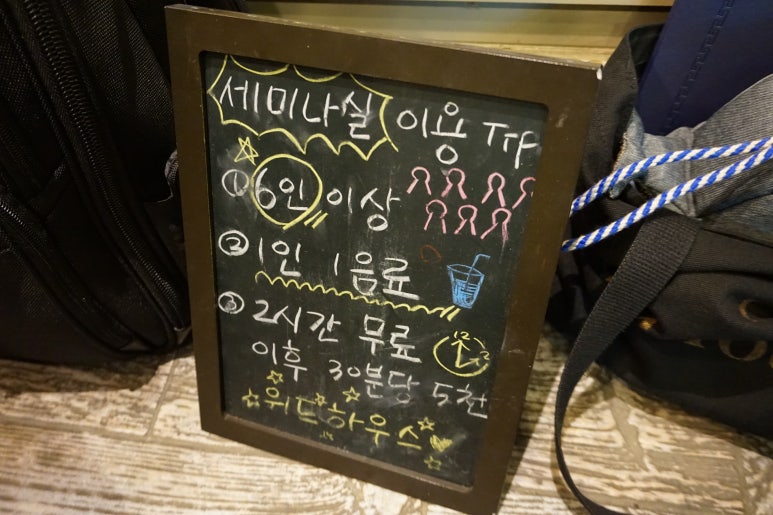 세미나실 이용 Tip
① 6인 이상
② 1인 1음료
③ 2시간 무료
12
3
이후 30분당 5천
위드하우스